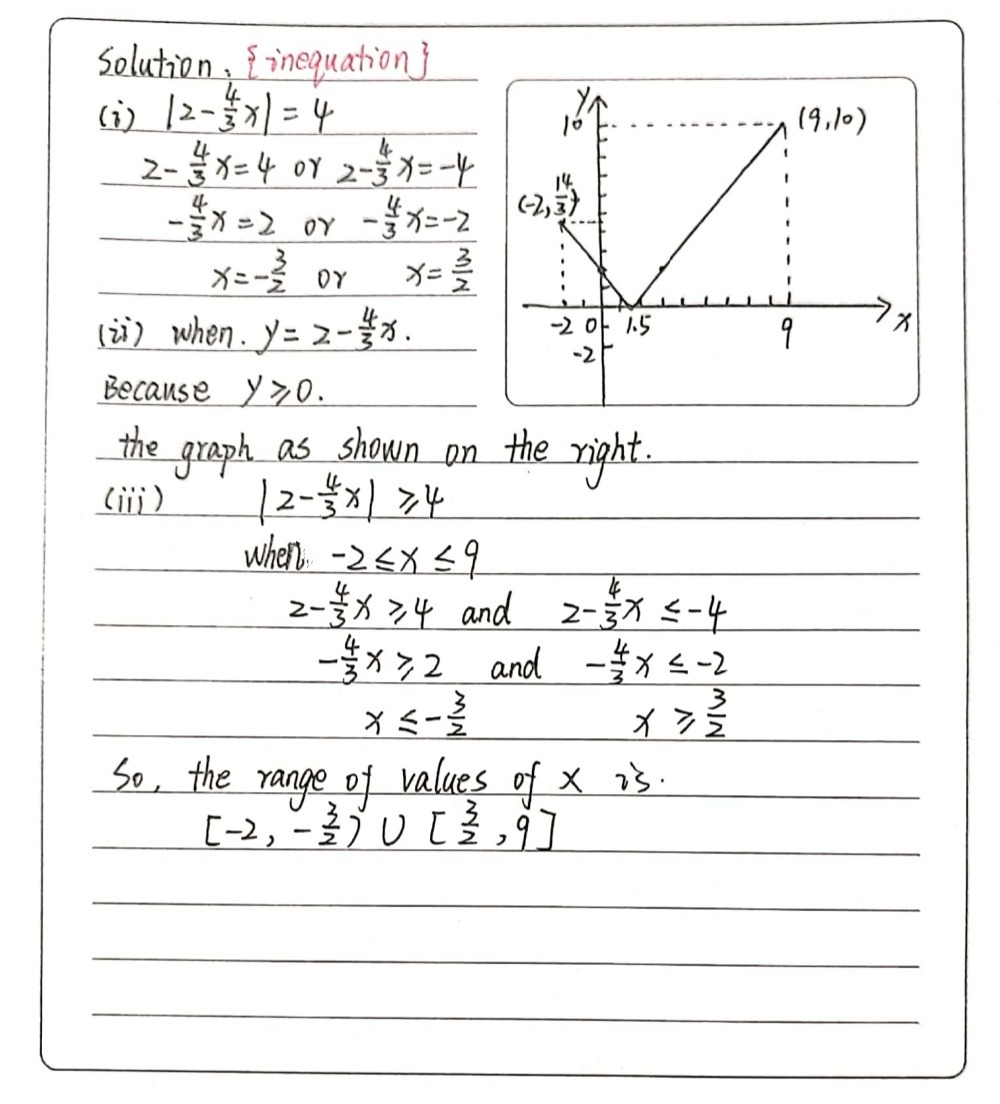 Solution. {inequation}
(i) |2-4/3x|=4
2-4/3x=4 or 2-4/3x=-4
-4/3x=2 or -4/3x=-2
x=-3/2 or x=3/2
(ii) when. y=2-4/3x.
Because y≥0.
y
10
(9,10)
(-2,14/3)
-2 0 1.5 9 x
-2
the graph as shown on the right.
(iii) |2-4/3x|≥4
when -2≤x≤9
2-4/3x≥4 and 2-4/3x≤-4
-4/3x≥2 and -4/3x≤-2
x≤-3/2 x≥3/2
So, the range of values of x is.
[-2,-3/2)∪[3/2,9]